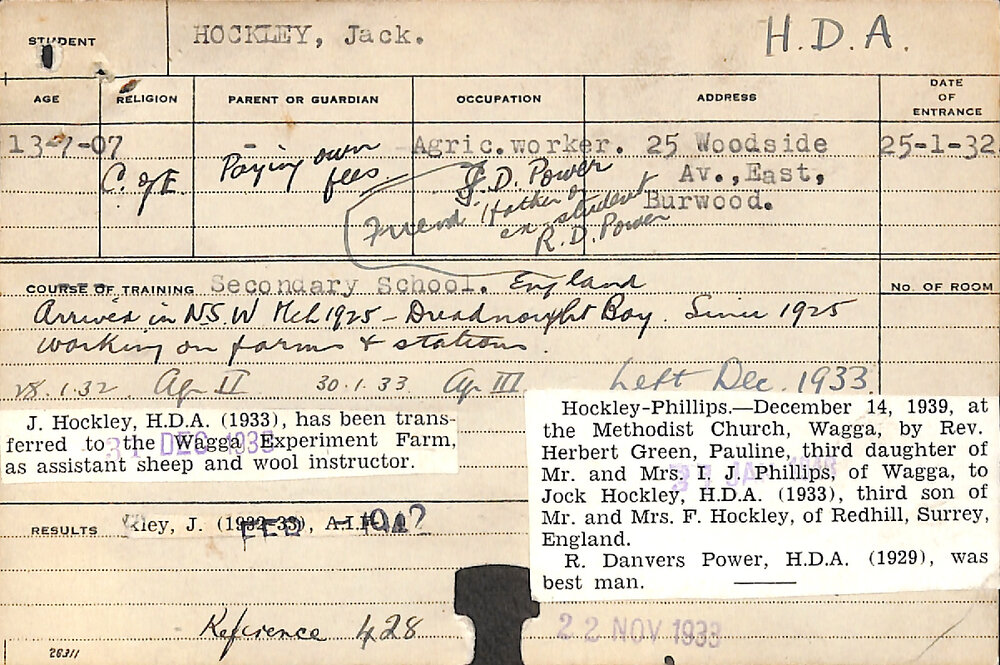 STUDENT HOCKLEY, Jack. H.D.A.
AGE RELIGION PARENT OR GUARDIAN OCCUPATION ADDRESS DATE OF ENTRANCE
13-7-07 - Agric.worker. 25 Woodside 25-1-32
C. of E. Paying own fees. J.D. Power Av.,East,
Friend (father of Burwood.
ex-student
R.D. Power
COURSE OF TRAINING Secondary School. England No. OF ROOM
Arrived in N.S.W Mch 1925 - Dreadnought Boy. Since 1925
working on farms & stations.
28.1.32. Ag II 30.1.33. Ag III Left Dec. 1933.
J. Hockley, H.D.A. (1933), has been trans-
ferred to the Wagga Experiment Farm,
as assistant sheep and wool instructor.
31 DEC 193
Hockley-Phillips.—December 14, 1939, at
the Methodist Church, Wagga, by Rev.
Herbert Green, Pauline, third daughter of
Mr. and Mrs. I. J. Phillips, of Wagga, to
Jock Hockley, H.D.A. (1933), third son of
Mr. and Mrs. F. Hockley, of Redhill, Surrey,
England.
R. Danvers Power, H.D.A. (1929), was
best man.
RESULTS kley, J. (1932-33), A.I.F.
FEB 1942
Reference 428
22 NOV 1933
26311